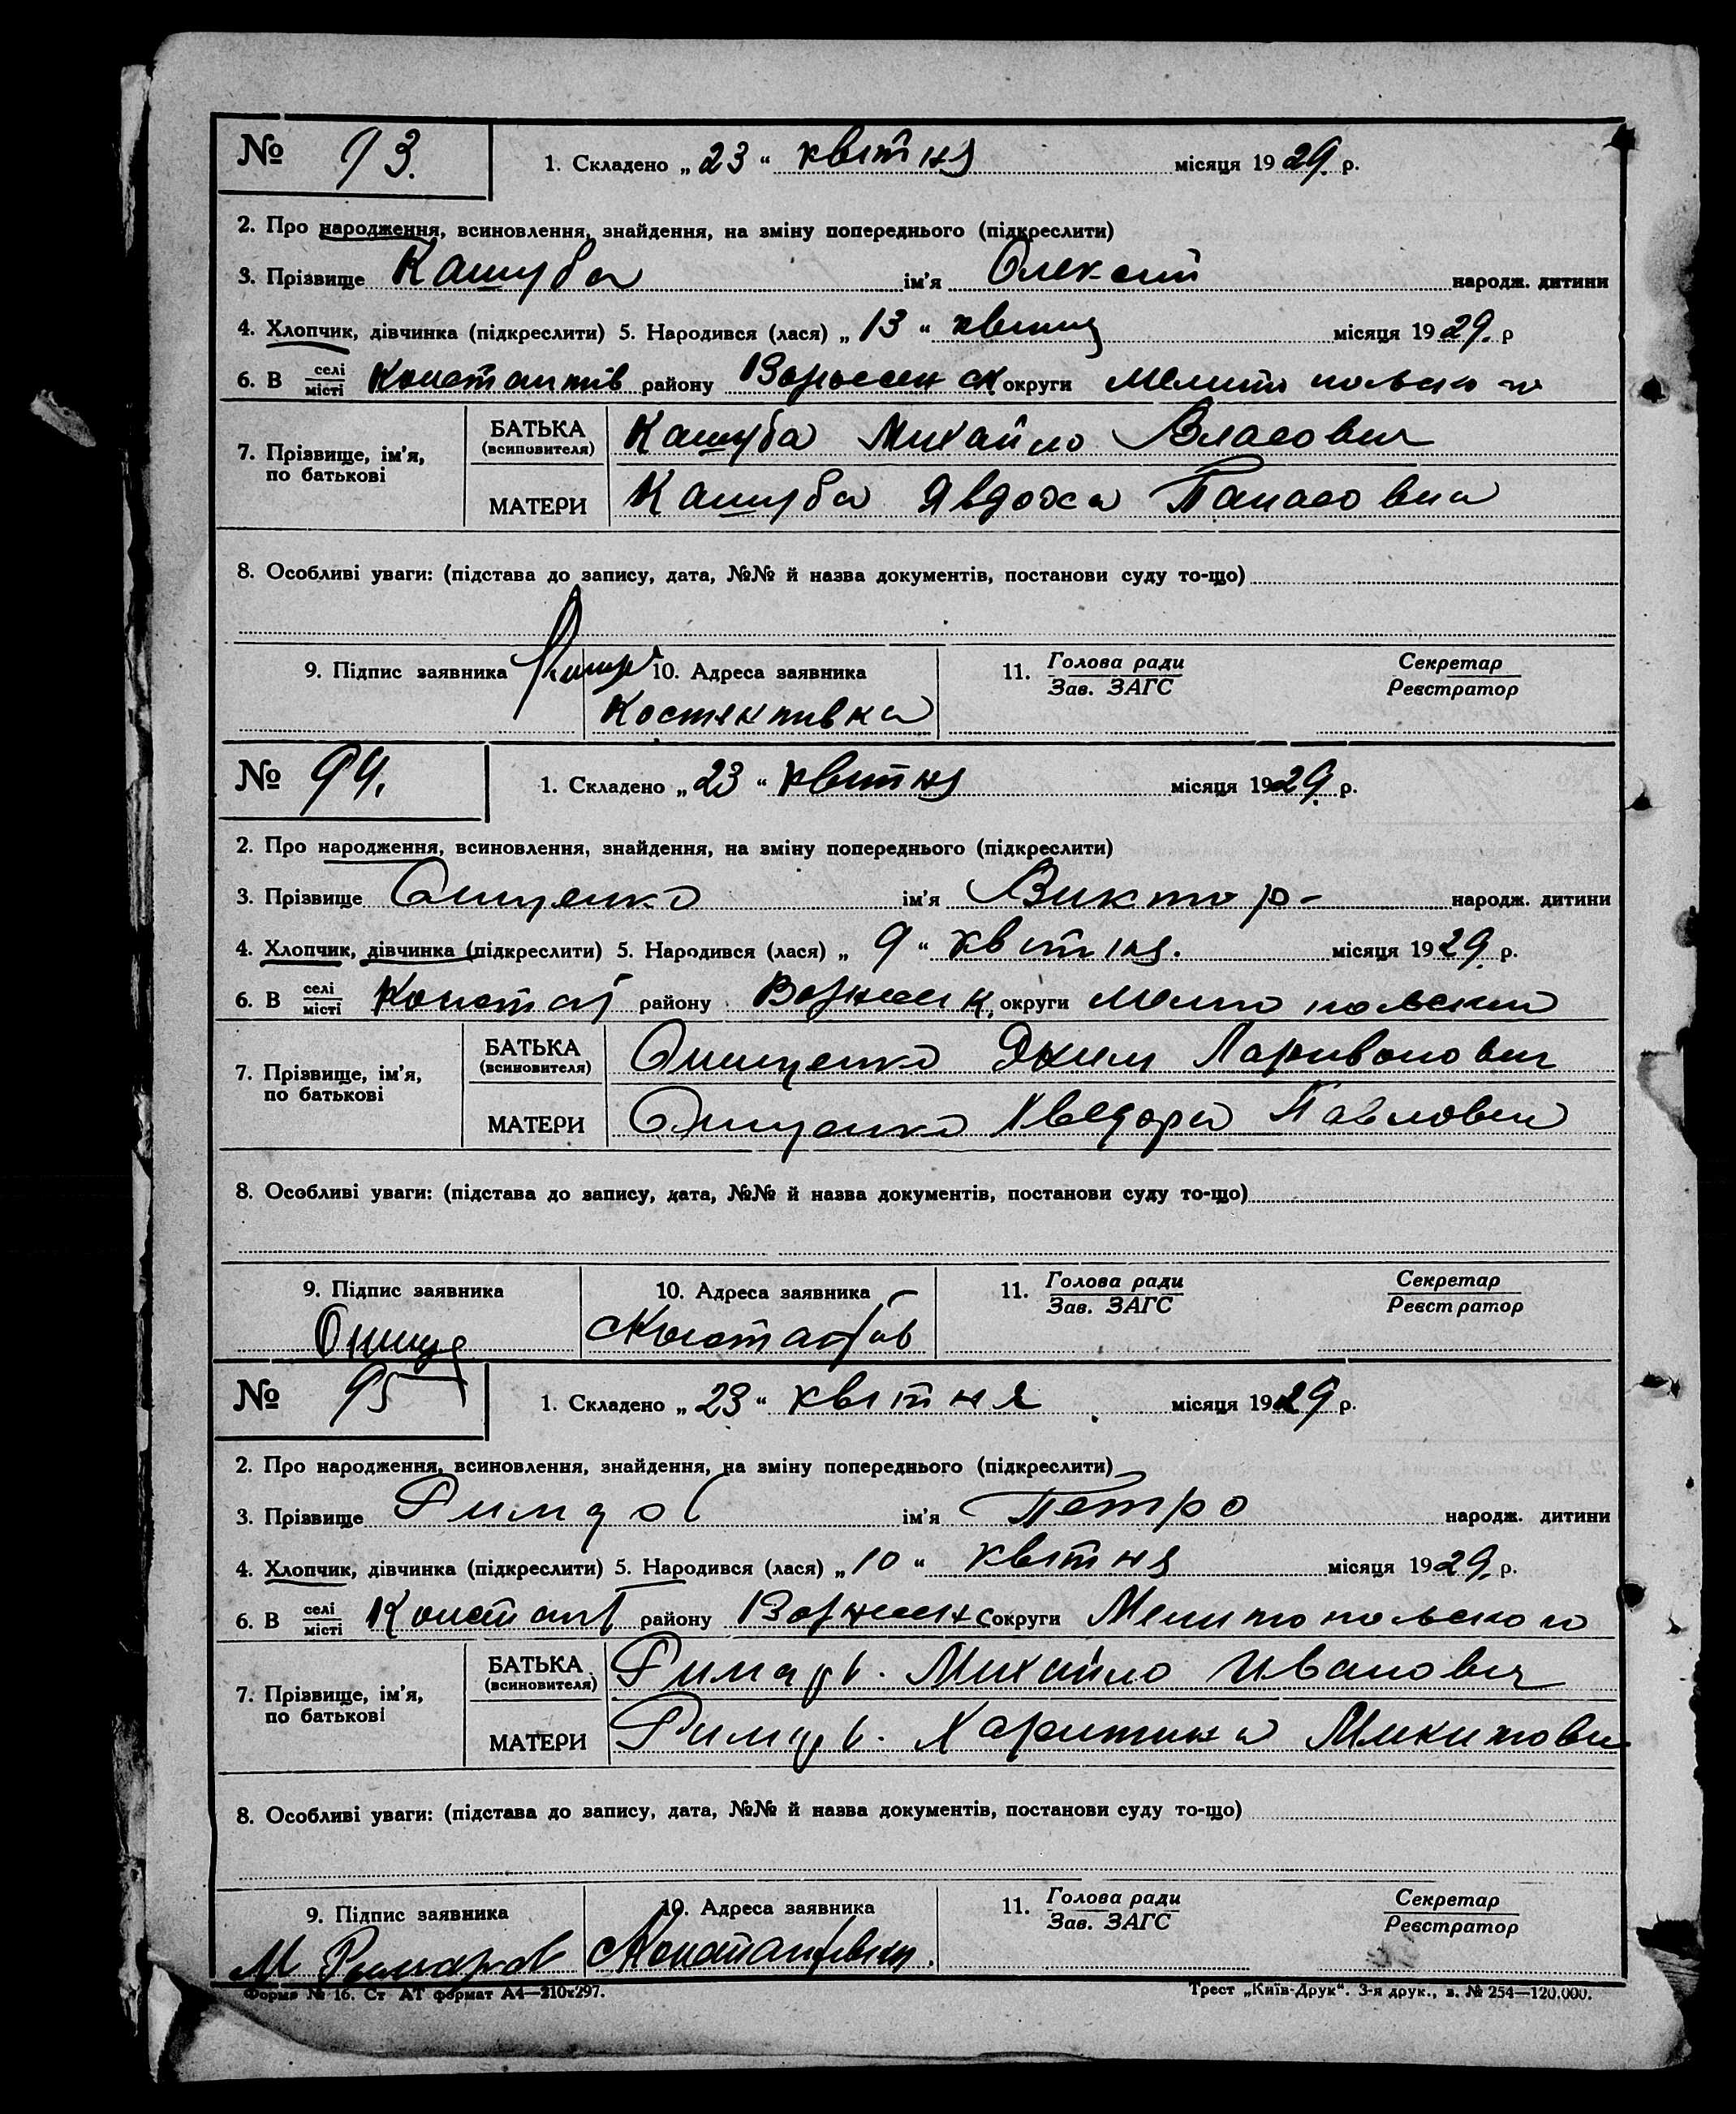 № 93. 1. Складено „23“ квітня місяця 1929. р.
2. Про народження, всиновлення, знайдення, на зміну попереднього (підкреслити)
3. Прізвище Кашуба ім'я Олексій народж. дитини
4. Хлопчик, дівчинка (підкреслити) 5. Народився (лася) „13“ квітня місяця 1929. р
6. В селі місті Константів району Вознесенск округи Мелитопольского
7. Прізвище, ім'я, по батькові БАТЬКА (всиновителя) Кашуба Михайло Власович
МАТЕРИ Кашуба Явдоха Панасовна
8. Особливі уваги: (підстава до запису, дата, №№ й назва документів, постанови суду то-що)
9. Підпис заявника 10. Адреса заявника 11. Голова ради Зав. ЗАГС Секретар Реєстратор
№ 94. 1. Складено „23“ квітня місяця 1929. р.
2. Про народження, всиновлення, знайдення, на зміну попереднього (підкреслити)
3. Прізвище Онищенко ім'я Виктор- народж. дитини
4. Хлопчик, дівчинка (підкреслити) 5. Народився (лася) „9“ квітня. місяця 1929. р.
6. В селі місті району округи
7. Прізвище, ім'я, по батькові БАТЬКА (всиновителя) Онищенко Яким Ларивонович
МАТЕРИ Онищенко Хведора Павловна
8. Особливі уваги: (підстава до запису, дата, №№ й назва документів, постанови суду то-що)
9. Підпис заявника 10. Адреса заявника 11. Голова ради Зав. ЗАГС Секретар Реєстратор
Онище
№ 95 1. Складено „23“ квітня місяця 1929 р.
2. Про народження, всиновлення, знайдення, на зміну попереднього (підкреслити)
3. Прізвище ім'я Петро народж. дитини
4. Хлопчик, дівчинка (підкреслити) 5. Народився (лася) „10“ квітня місяця 1929. р.
6. В селі місті Констант району округи Мелитопольского
7. Прізвище, ім'я, по батькові БАТЬКА (всиновителя) Римарь. Михайло Иванович
МАТЕРИ Римарь. Харитина Микитовн
8. Особливі уваги: (підстава до запису, дата, №№ й назва документів, постанови суду то-що)
9. Підпис заявника 10. Адреса заявника 11. Голова ради Зав. ЗАГС Секретар Реєстратор
М Римаров
Форма № 16. Ст АТ формат А4—210х297. Трест „Київ-Друк“. 3-я друк., з. № 254—120.000.